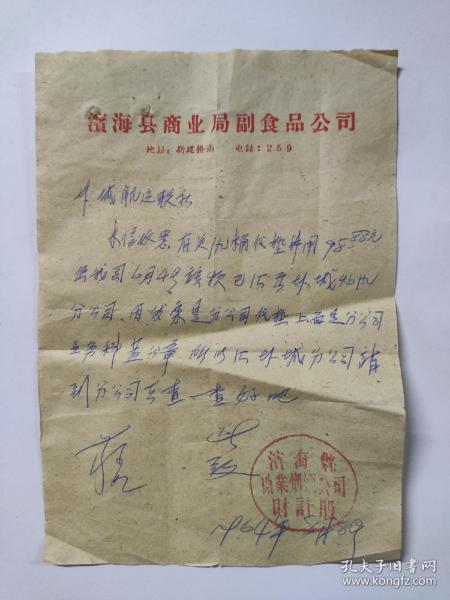 滨海县商业局副食品公司
地址：新建桥南 电话：259
航运联社
来信收悉 有关 桶代垫费用98.88元
我司6月4号该款已汇去 城
分公司、因发票是分公司代垫上面是分公司
业务科盖了章 所以汇 城分公司 请
到分公司去查一查 好吧
此
致
滨海县
公司
财计股
1964年 月 8日
孔夫子旧书网
www.kongfz.com